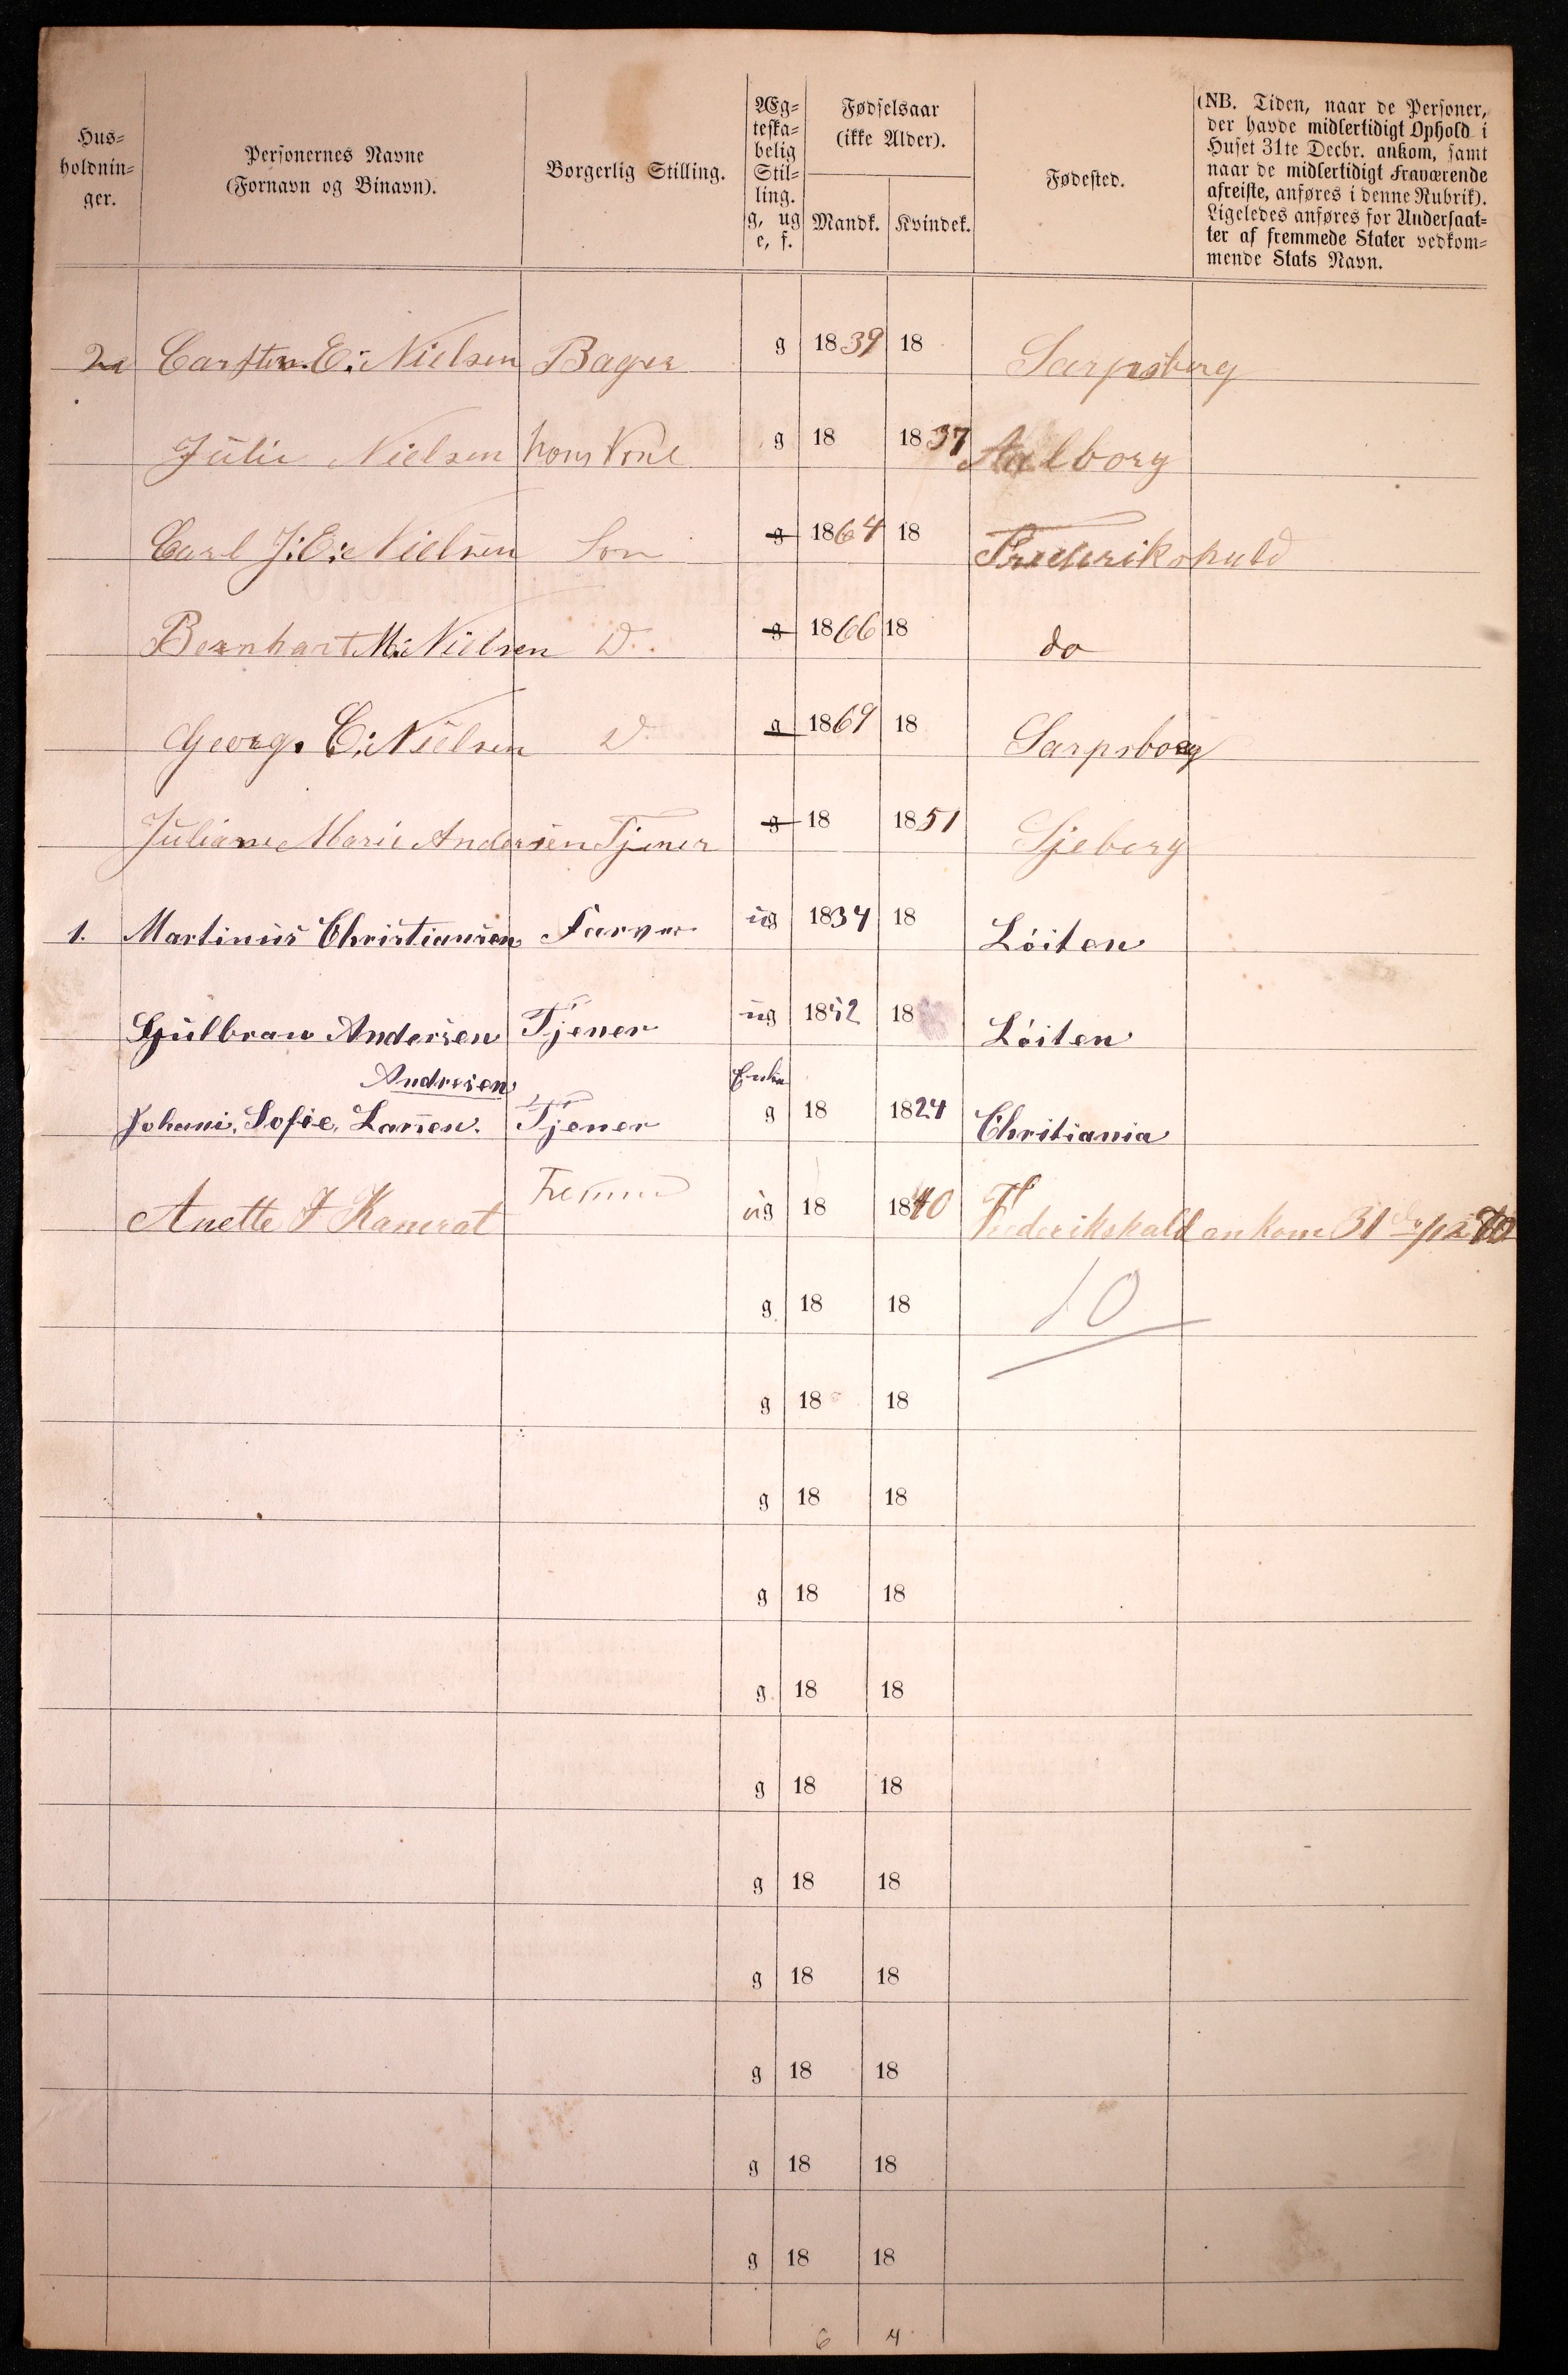 Hus=
holdnin=
ger.
Personernes Navne
(Fornavn og Binavn).
Borgerlig Stilling.
Æg=
teska=
belig
Stil=
ling.
g, ug
e, f.
Fødselsaar
(ikke Alder).
Mandk. Kvindek.
Fødested.
(NB. Tiden, naar de Personer,
der havde midlertidigt Ophold i
Huset 31te Decbr. ankom, samt
naar de midlertidigt Fraværende
afreiste, anføres i denne Rubrik).
Ligeledes anføres for Undersaat=
ter af fremmede Stater vedkom=
mende Stats Navn.
Carsten E: Nielsen Bager g 1839 18 Sarpsborg
Julie Nielsen hans Kone g 18 1837 Aalborg
Carl J: E: Nielsen Son g 1864 18 Frederikshald
Bernhart M: Nielsen D. g 1866 18 do
Georg. C: Nielsen D g 1869 18 Sarpsborg
Juliane Marie Andersen Tjener g 18 1851 Sjeberg
1. Martinus Christiansen Farver ug 1834 18 Löiten
Gulbran Andersen Tjener ug 1852 18 Löiten
Andresen Enke
Johani. Sofie. Larsen. Tjener g 18 1824 Chritiania
Anette F Kamerat ug 18 1840 Frederikshald ankom 31 12 70
g 18 18 10
g 18 18
g 18 18
g 18 18
g 18 18
g 18 18
g 18 18
g 18 18
g 18 18
g 18 18
g 18 18
6 4